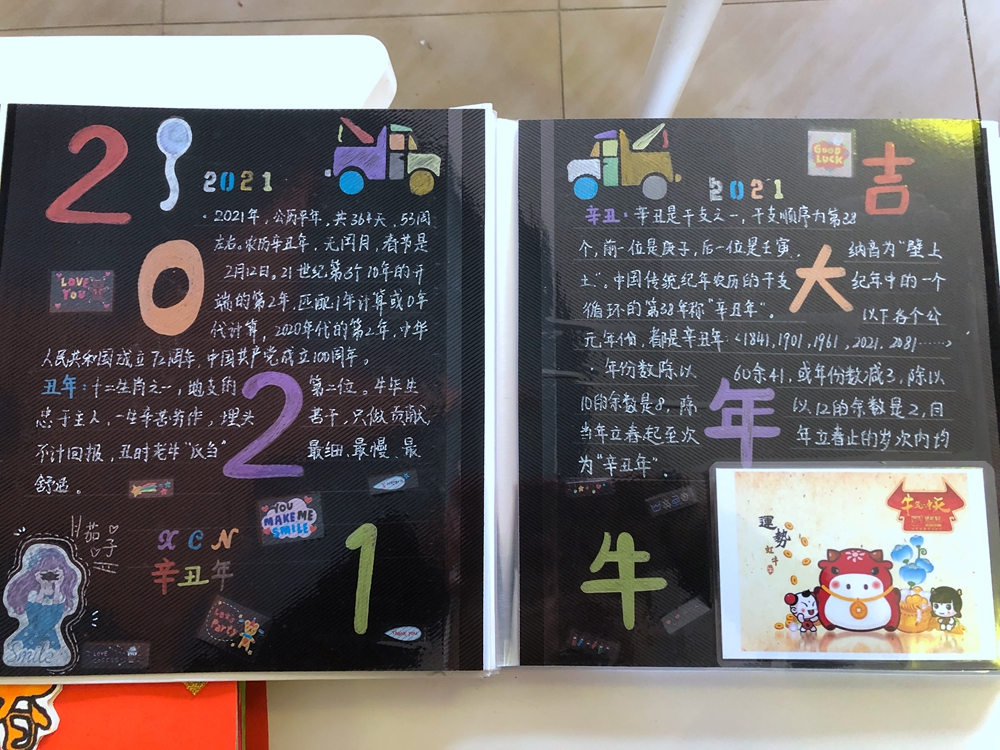 2
0
2
1
2021
2021年，公历平年，共364天，53周
左右。农历辛丑年，无闰月，春节是
2月12日。21世纪第3个10年的开
端的第2年，匹配1年计算或0年
代计算，2020年代的第2年，中华
人民共和国成立72周年，中国共产党成立100周年。
丑年：十二生肖之一，地支的第二位。牛毕生
忠于主人，一生辛苦劳作，埋头苦干，只做贡献
不计回报，丑时老牛“反刍”最细、最慢、最
舒适。
LOVE YOU
YOU
MAKE ME
SMILE
茄子
XCN
辛丑年
Love
Party
THANK YOU
Smile
2021
GOOD
LUCK
吉
大
年
牛
辛丑：辛丑是干支之一，干支顺序为第38
个，前一位是庚子，后一位是壬寅。纳音为“壁上
土”。中国传统纪年农历的干支纪年中的一个
循环的第38年称“辛丑年”。以下各个公
元年份，都是辛丑年：<1841,1901,1961,2021,2081……>
·年份数除以60余41，或年份数减3，除以
10的余数是8，除以12的余数是2，自
当年立春起至次年立春止的岁次内均
为“辛丑年”。
運势